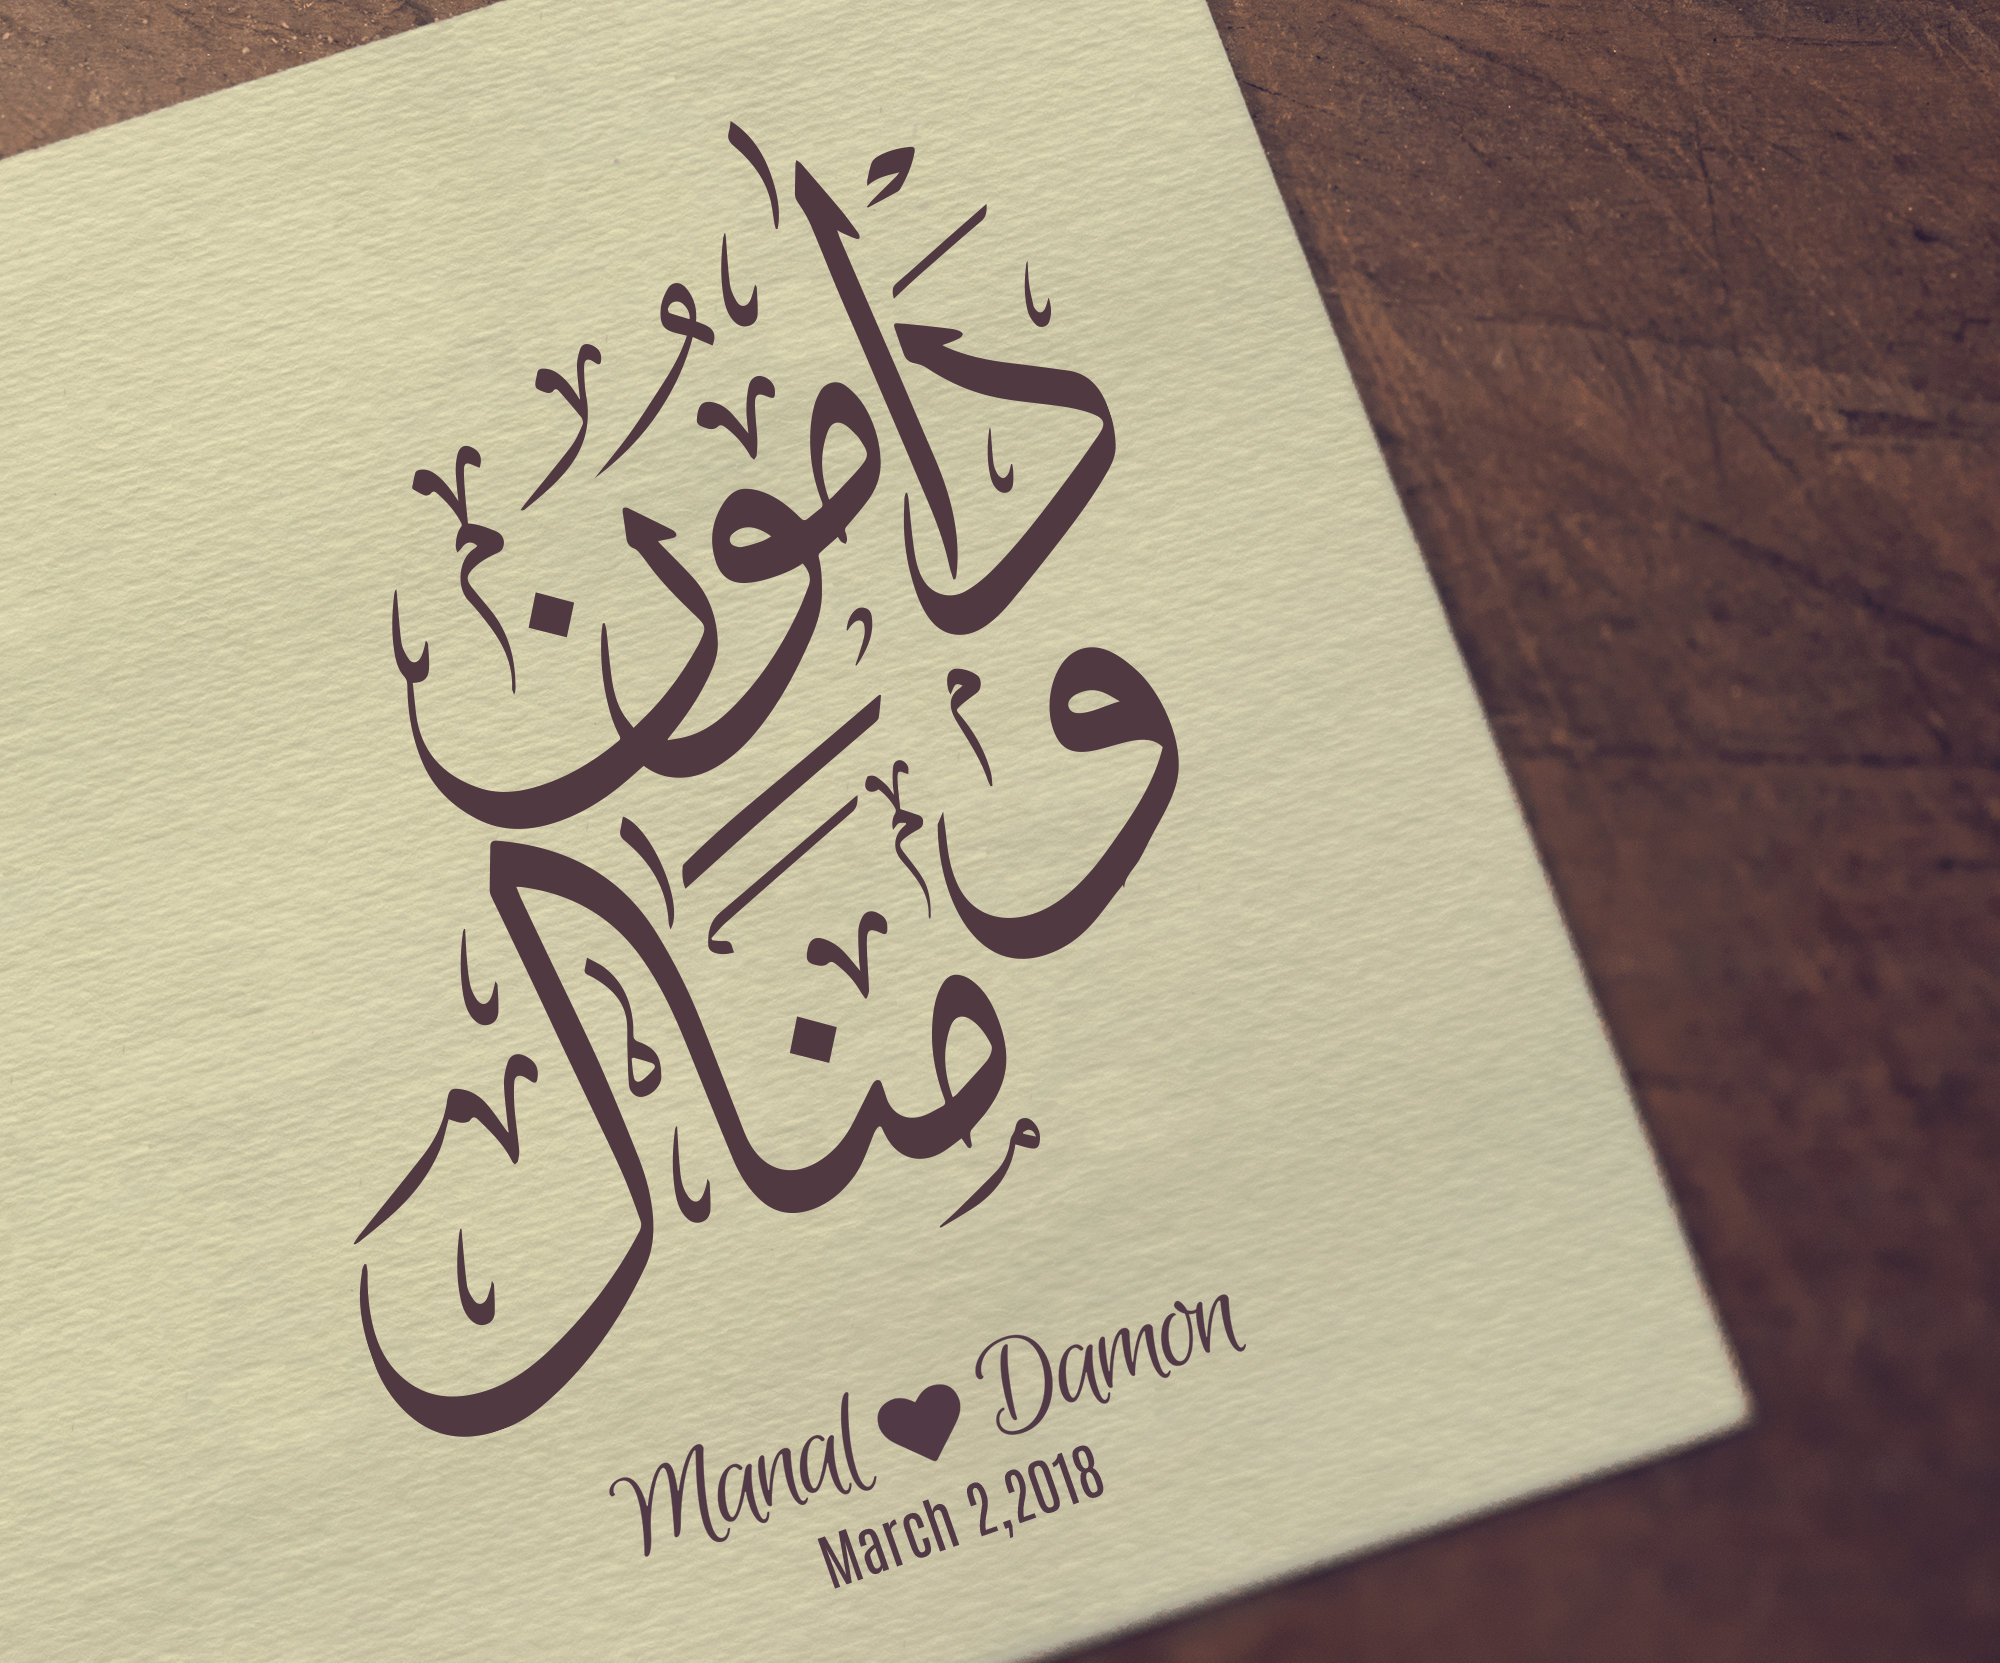 دامون
و
منال
Manal ♥ Damon
March 2,2018